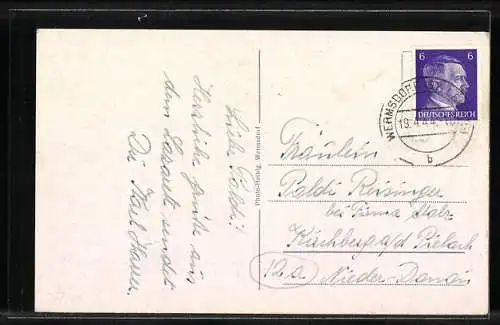 Liebe Poldi!
Herzliche Grüße aus
dem Lazarett sendet
Dir Karl
Photo-Hertig, Wermsdorf
6 6
DEUTSCHES REICH
WERMSDORF
19.4.44
b
Fräulein
Poldi Reisinger
bei Firma
Kirchberg a/d Pielach
(12a) Nieder-Donau